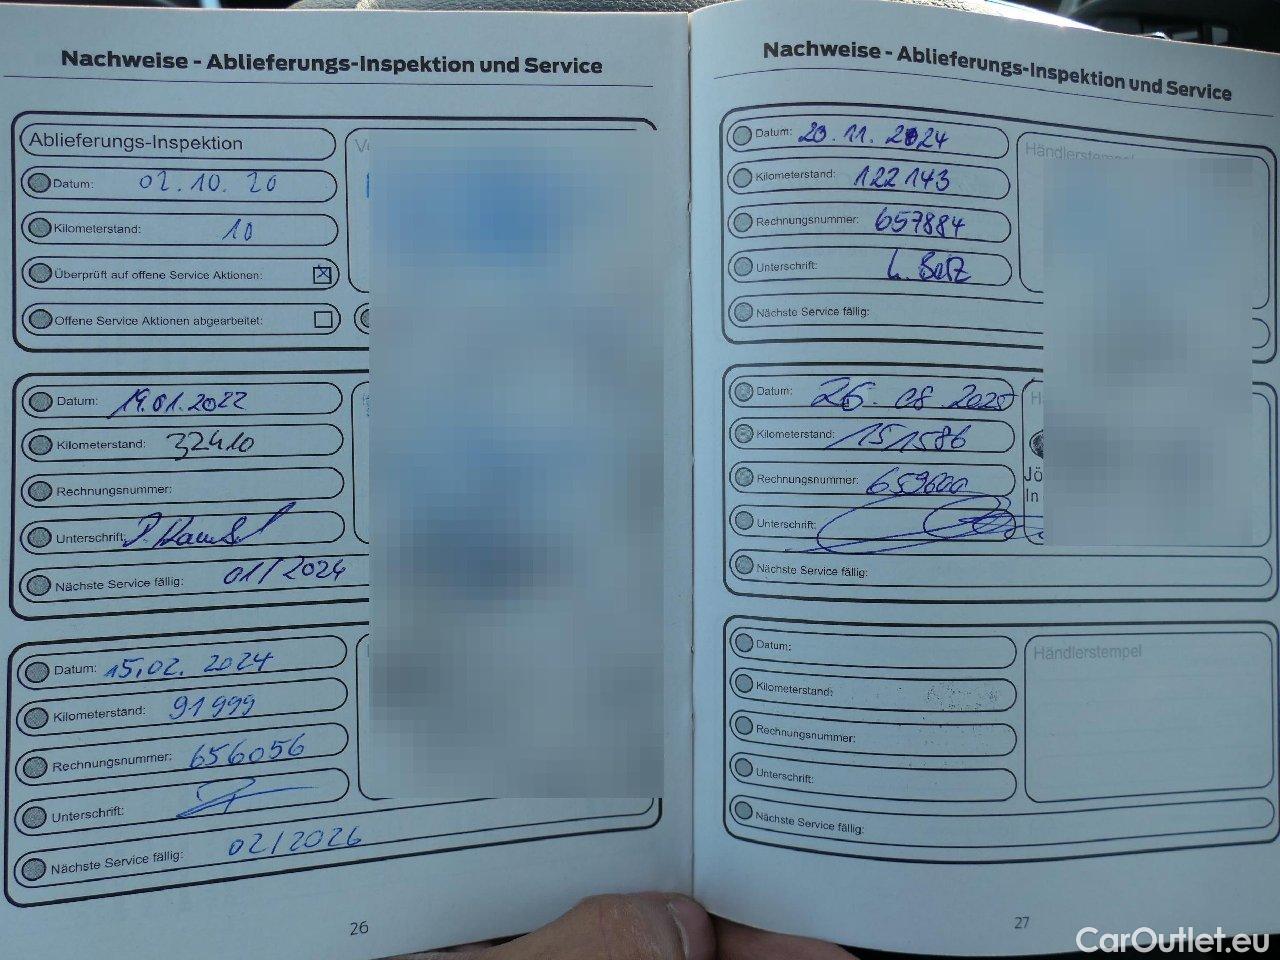 Nachweise - Ablieferungs-Inspektion und Service
Ablieferungs-Inspektion
Datum: 02.10.20
Kilometerstand: 10
Überprüft auf offene Service Aktionen:
Offene Service Aktionen abgearbeitet:
Datum: 19.01.2022
Kilometerstand: 32410
Rechnungsnummer:
Unterschrift:
Nächste Service fällig: 01/2024
Datum: 15.02.2024
Kilometerstand: 91999
Rechnungsnummer: 656056
Unterschrift:
Nächste Service fällig: 02/2026
26
Nachweise - Ablieferungs-Inspektion und Service
Datum: 20.11.2024
Händlerstempel
Kilometerstand: 122143
Rechnungsnummer: 657884
Unterschrift:
Nächste Service fällig:
Datum: 26.08.2025
Kilometerstand: 151586
Rechnungsnummer: 659600
Jö
In
Unterschrift:
Nächste Service fällig:
Datum:
Händlerstempel
Kilometerstand:
Rechnungsnummer:
Unterschrift:
Nächste Service fällig:
27
CarOutlet.eu